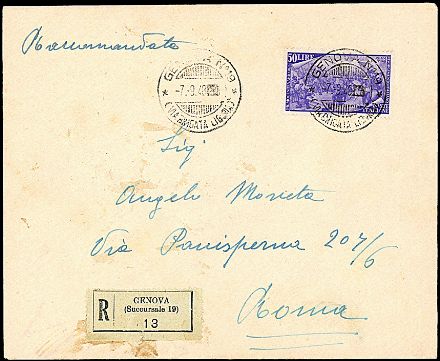 Raccomandata
GENOVA N.19
-7.9.48
(VIA BRIGATA LIGURIA)
50 LIRE
GENOVA N.19
Sig.
Angelo
Via Panisperna 207/6
Roma
R
GENOVA
(Succursale 19)
13